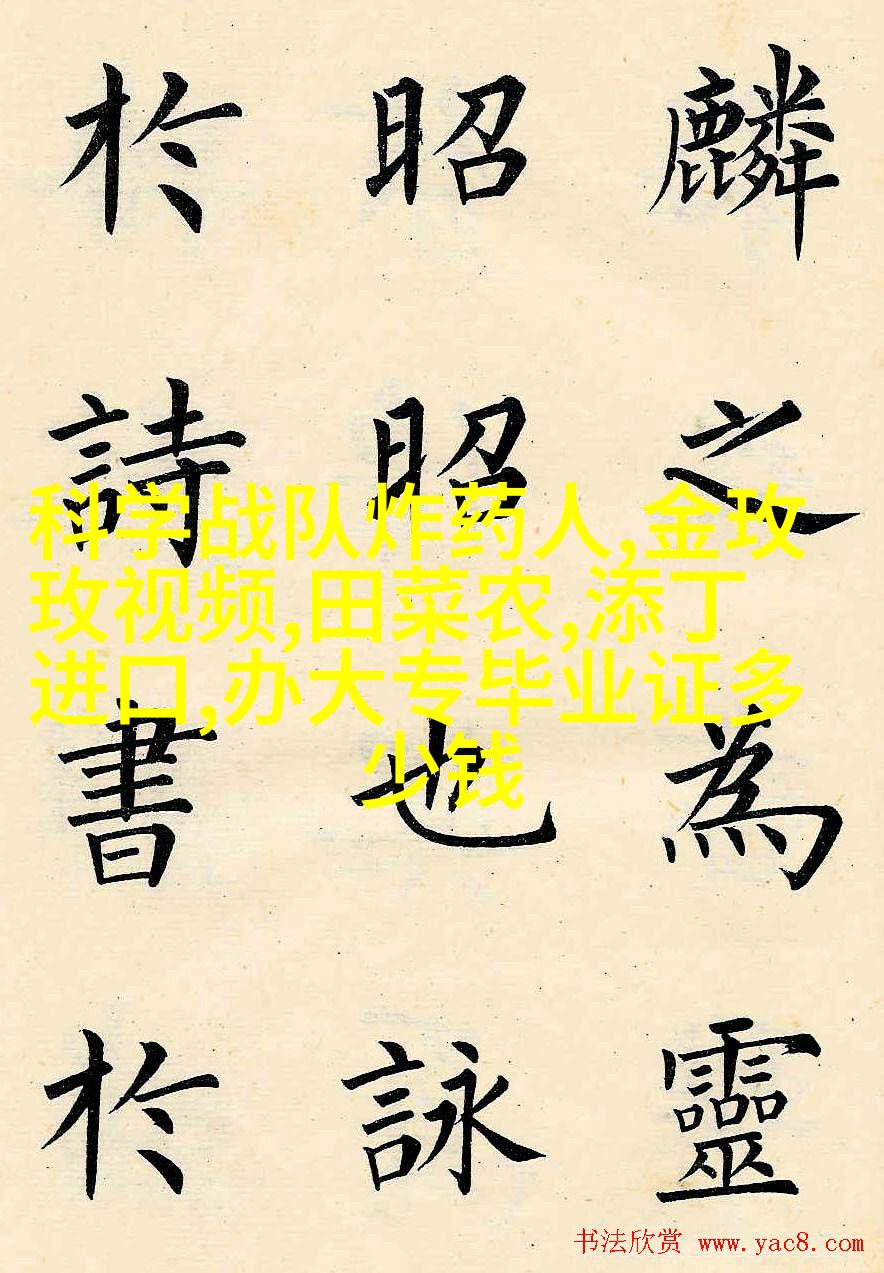 麟之為靈
昭昭也詠
於詩書於
科学战队炸药人,金玫
玫视频,田菜农,添丁
进口,办大专毕业证多
少钱
书法欣赏 www.yac8.com